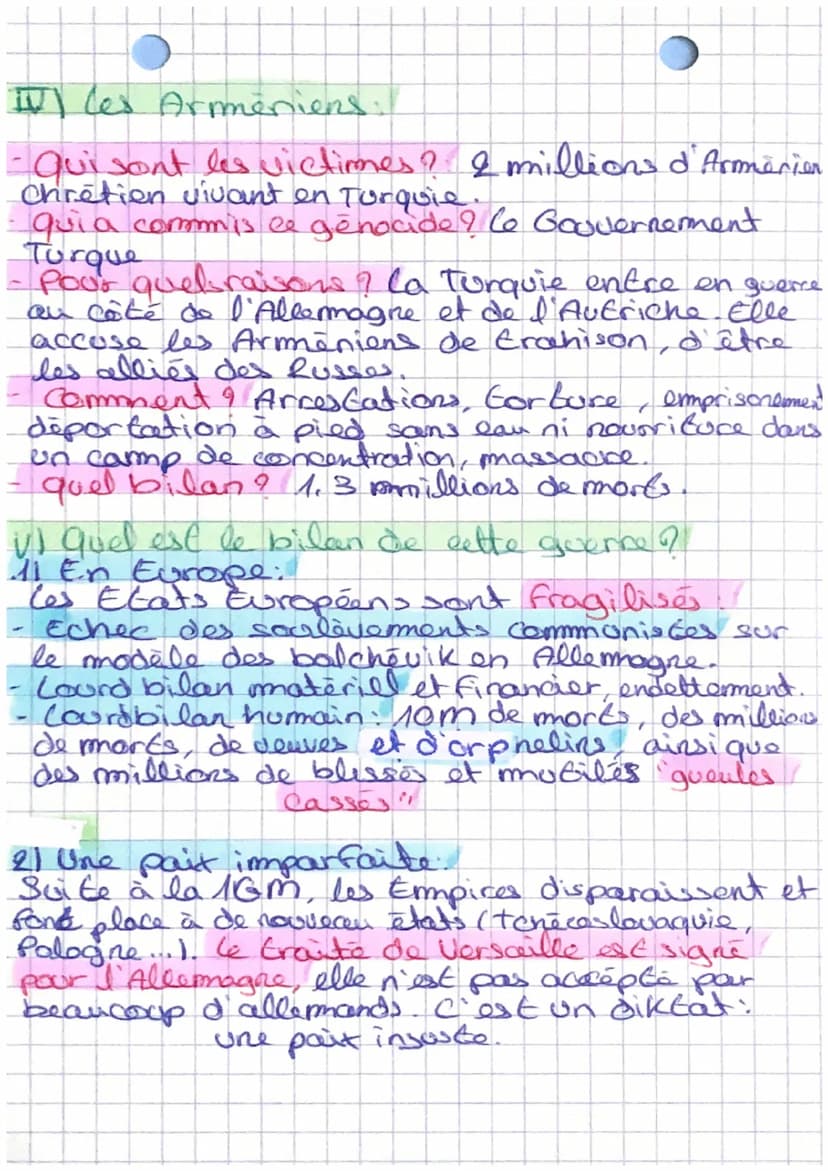 IV) Les Arméniens:
- Qui sont les victimes? 2 millions d'Arménien
Chrétien vivant en Turquie.
- qui a commis ce génocide? Le Gouvernement
Turque
- Pour quels raisons? La Turquie entre en guerre
au côté de l'Allemagne et de l'Autriche. Elle
accuse les Arméniens de trahison, d'être
les alliés des Russes.
- Comment? Arrestations, torture, emprisonement
déportation à pied sans eau ni nourriture dans
un camp de concentration, massacre.
- quel bilan? 1,3 millions de morts.
V) Quel est le bilan de cette guerre?
1) En Europe:
Les Etats Européens sont fragilisés:
- Echec des soulèvements communistes sur
le modèle des bolchévik en Allemagne.
- Lourd bilan matériel et financier, endettement.
- Lourd bilan humain: 10m de morts, des millions
de morts, de veuves et d'orphelins, ainsi que
des millions de blessés et mutilés "gueules
cassés"
2) Une paix imparfaite:
Suite à la 1GM, les Empires disparaissent et
font place à de nouveau états (tchécoslovaquie,
Pologne...). Le traité de Versaille est signé
pour l'Allemagne, elle n'est pas accépté par
beaucoup d'allemands. C'est un diktat:
une paix injuste.